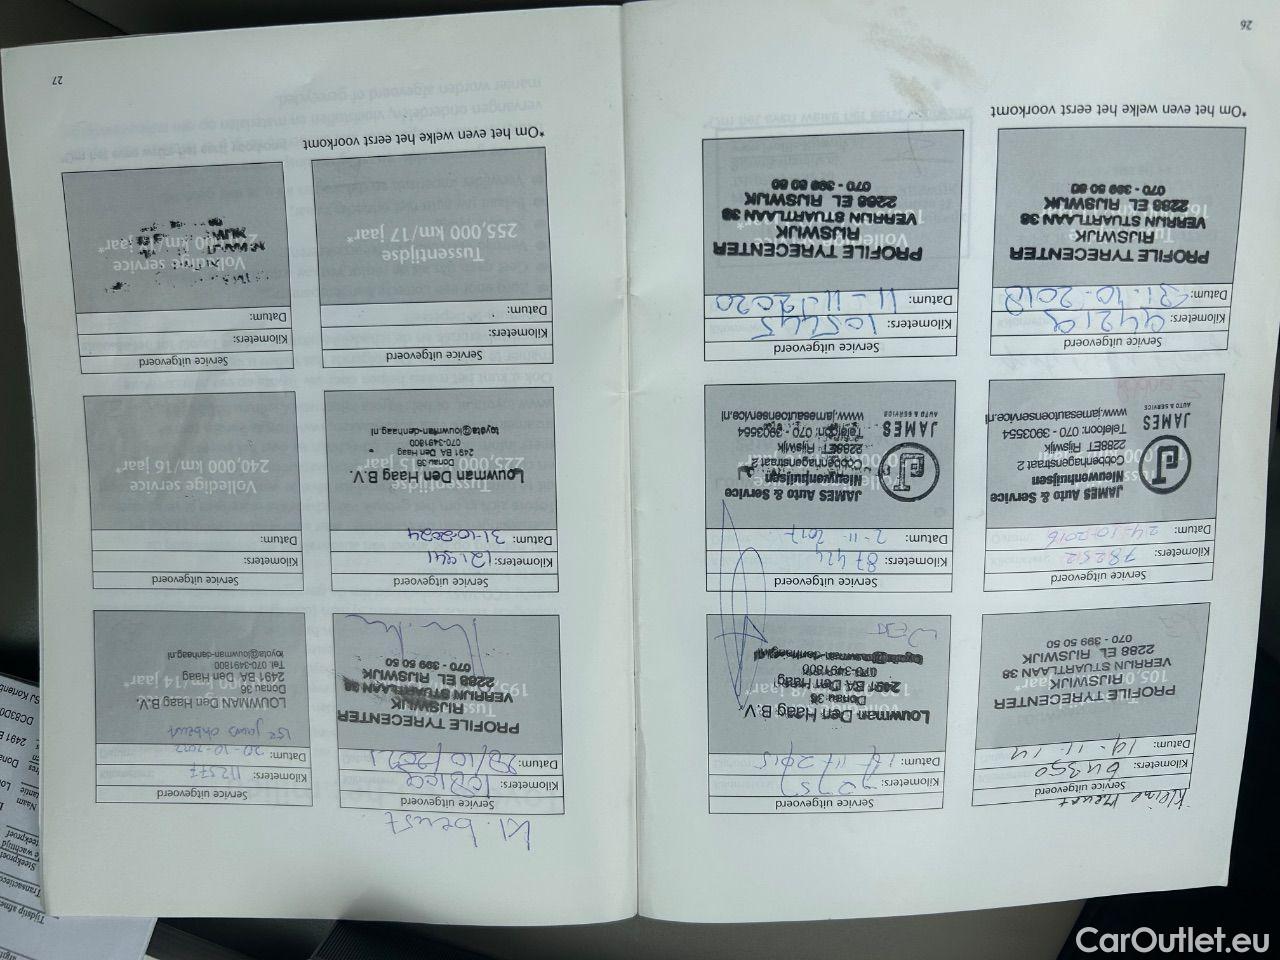 Kleine beurt
Service uitgevoerd
Kilometers: 64350
Datum: 14-11-14
105,0
jaar*
PROFILE TYRECENTER
RIJSWIJK
VERRIJN STUARTLAAN 38
2288 EL RIJSWIJK
070 - 399 50 50
Service uitgevoerd
Kilometers:
Datum: 17-11-2015
Louwman Den Haag B.V.
Donau 36
2491 BA Den Haag
070-3491800
Service uitgevoerd
Kilometers: 78252
Datum: 24-10-2016
JAMES Auto & Service
Nieuwenhuijsen
Cobbenhagenstraat 2
2288ET Rijswijk
Telefoon: 070 - 3903554
www.jamesautoenservice.nl
JAMES
AUTO & SERVICE
Service uitgevoerd
Kilometers: 87424
Datum: 2-11-2017
JAMES Auto & Service
Nieuwenhuijsen
Cobbenhagenstraat 2
2288ET Rijswijk
Telefoon: 070 - 3903554
www.jamesautoenservice.nl
JAMES
AUTO & SERVICE
Service uitgevoerd
Kilometers: 94219
Datum: 31-10-2018
PROFILE TYRECENTER
RIJSWIJK
VERRIJN STUARTLAAN 38
2288 EL RIJSWIJK
070 - 399 50 50
Service uitgevoerd
Kilometers: 105445
Datum: 11-11-2020
PROFILE TYRECENTER
RIJSWIJK
VERRIJN STUARTLAAN 38
2288 EL RIJSWIJK
070 - 399 50 50
*Om het even welke het eerst voorkomt
26
kl. beurt
Service uitgevoerd
Kilometers:
Datum: 28/10/2021
Tussentijdse
PROFILE TYRECENTER
RIJSWIJK
VERRIJN STUARTLAAN 38
2288 EL RIJSWIJK
070 - 399 50 50
Service uitgevoerd
Kilometers: 112577
Datum: 20-10-2022
LOUWMAN DEN HAAG B.V.
Donau 36
2491 BA Den Haag
Tel. 070-3491800
toyota@louwman-denhaag.nl
Service uitgevoerd
Kilometers: 121941
Datum: 31-10-2024
Tussentijdse
225,000 km/15 jaar*
Louwman Den Haag B.V.
Donau 36
2491 BA Den Haag
070-3491800
toyota@louwman-denhaag.nl
Service uitgevoerd
Kilometers:
Datum:
Volledige service
240,000 km/16 jaar*
Service uitgevoerd
Kilometers:
Datum:
Tussentijdse
255,000 km/17 jaar*
Service uitgevoerd
Kilometers:
Datum:
Volledige service
*Om het even welke het eerst voorkomt
27
CarOutlet.eu